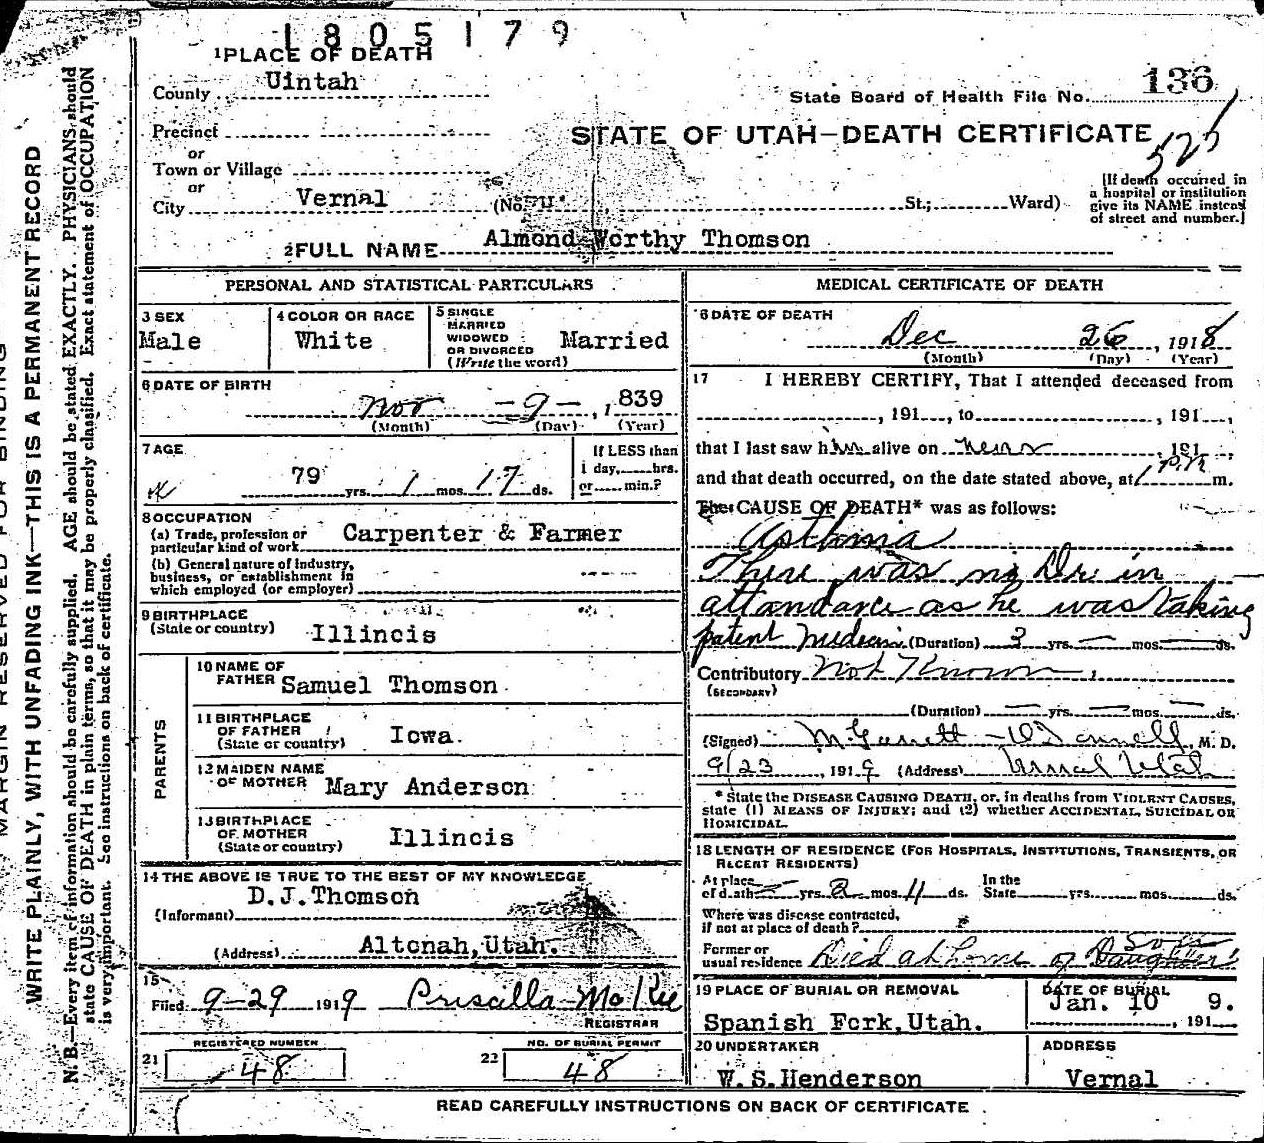 1805179
1 PLACE OF DEATH
County Uintah
State Board of Health File No. 136
Precinct
or
STATE OF UTAH—DEATH CERTIFICATE
525
Town or Village
or
City Vernal (No. St.; Ward)
[If death occurred in
a hospital or institution
give its NAME instead
of street and number.]
2 FULL NAME Almond Worthy Thomson
PERSONAL AND STATISTICAL PARTICULARS
3 SEX
Male
4 COLOR OR RACE
White
5 SINGLE
MARRIED
WIDOWED
OR DIVORCED
(Write the word)
Married
6 DATE OF BIRTH
Nov -9-, 1839
(Month) (Day) (Year)
7 AGE
79 yrs. 1 mos. 17 ds.
If LESS than
1 day, hrs.
or min.?
8 OCCUPATION
(a) Trade, profession or
particular kind of work Carpenter & Farmer
(b) General nature of industry,
business, or establishment in
which employed (or employer)
9 BIRTHPLACE
(State or country) Illincis
PARENTS
10 NAME OF
FATHER Samuel Thomson
11 BIRTHPLACE
OF FATHER
(State or country) Iowa.
12 MAIDEN NAME
OF MOTHER Mary Anderson
13 BIRTHPLACE
OF MOTHER
(State or country) Illincis
14 THE ABOVE IS TRUE TO THE BEST OF MY KNOWLEDGE
D.J.Thomson
(Informant)
(Address) Altonah, Utah.
15
Filed 9-29 1919 Priscilla McKee
REGISTRAR
REGISTERED NUMBER
21 48
NO. OF BURIAL PERMIT
22 48
MEDICAL CERTIFICATE OF DEATH
16 DATE OF DEATH
Dec 26, 1918
(Month) (Day) (Year)
17 I HEREBY CERTIFY, That I attended deceased from
, 191 , to , 191 ,
that I last saw him alive on never , 191 ,
and that death occurred, on the date stated above, at 1 P.M m.
The CAUSE OF DEATH* was as follows:
Asthma
There was no Dr. in
attendance as he was taking
patent medecin (Duration) 3 yrs. — mos. — ds.
Contributory Not Known
(SECONDARY)
(Duration) — yrs. — mos. — ds.
(Signed) M. D.
9/23, 1919 (Address) Vernal Utah
* State the DISEASE CAUSING DEATH, or, in deaths from VIOLENT CAUSES,
state (1) MEANS OF INJURY; and (2) whether ACCIDENTAL, SUICIDAL OR
HOMICIDAL.
18 LENGTH OF RESIDENCE (FOR HOSPITALS, INSTITUTIONS, TRANSIENTS, OR
RECENT RESIDENTS)
At place
of death — yrs. 2 mos. 11 ds.
In the
State yrs. mos. ds.
Where was disease contracted,
if not at place of death?
Former or
usual residence Died at home of Daughter Son
19 PLACE OF BURIAL OR REMOVAL
Spanish Fork, Utah.
DATE OF BURIAL
Jan. 10 9.
, 191
20 UNDERTAKER
W.S.Henderson
ADDRESS
Vernal
READ CAREFULLY INSTRUCTIONS ON BACK OF CERTIFICATE
MARGIN RESERVED FOR BINDING
WRITE PLAINLY, WITH UNFADING INK—THIS IS A PERMANENT RECORD
N. B.—Every item of information should be carefully supplied. AGE should be stated EXACTLY. PHYSICIANS should
state CAUSE OF DEATH in plain terms, so that it may be properly classified. Exact statement of OCCUPATION
is very important. See instructions on back of certificate.